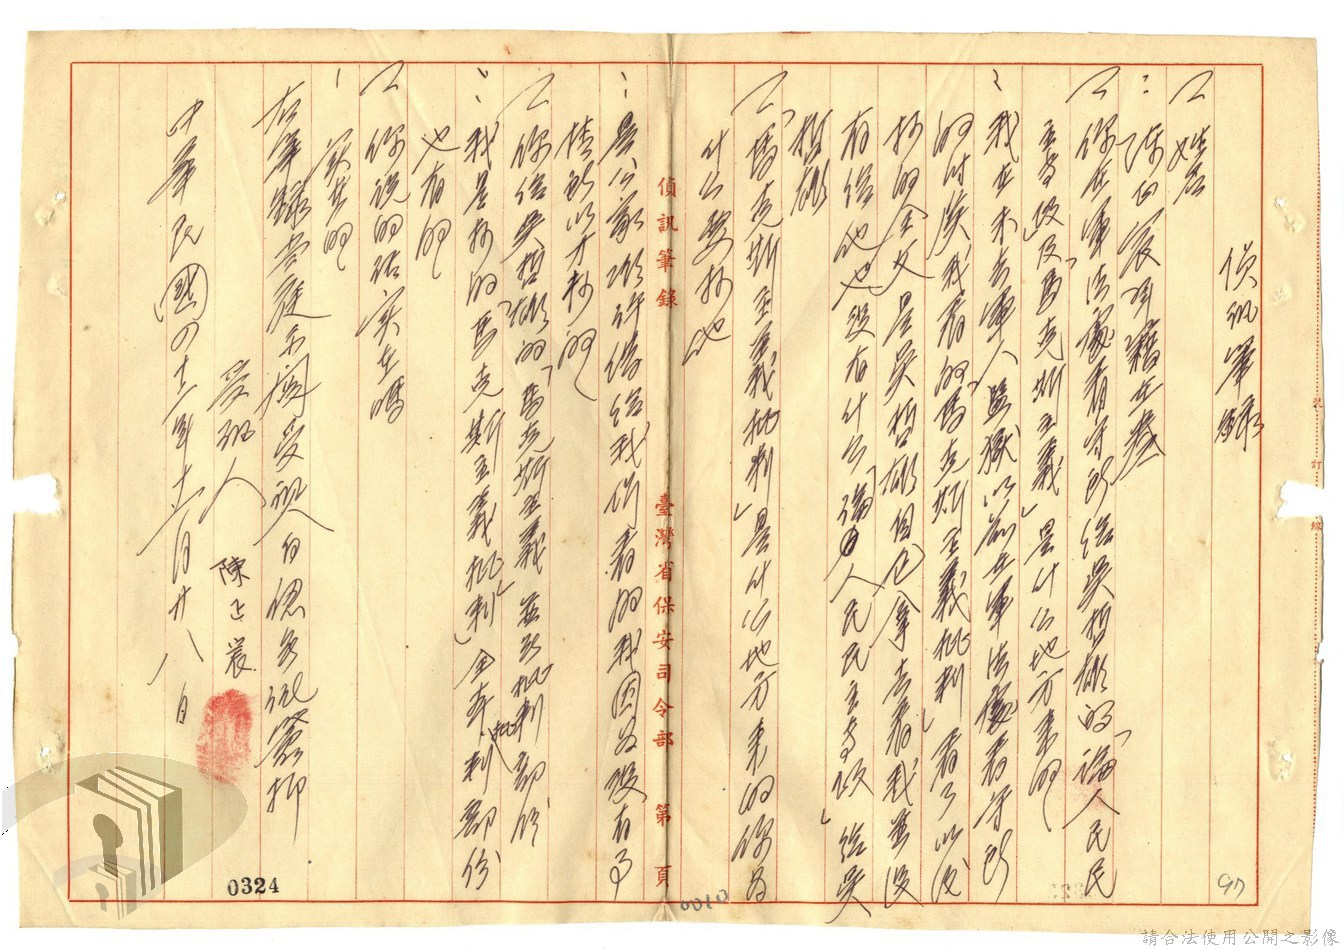 偵訊筆錄
問 姓名
答：陳正宸 年籍在卷
問 你在軍法處看守所給吳哲雄的「論人民民
主專政」及「馬克斯主義」是什么地方來的
答：我在未去軍人監獄以前在軍法處看守所
的时候我看的「馬克斯主義批判」看了以後
抄的全文是吳哲雄自己拿去看我並沒
有給他也沒有什么「論人民民主專政」給吳
哲雄
問「馬克斯主義批判」是什么地方來的你為
什么要抄他
答：是公家准許借給我們看的我因為沒有事
情所以才抄的
問 你給吳哲雄的「馬克斯主義」並無批判部份
答：我是抄的「馬克斯主義批判」全本批判部份
也有的
問 你說的話实在嗎
答：实在的
右筆錄當庭示閱受訊人自認無訛簽押
受訊人 陳正宸
中華民國四十二年十二月廿八日
偵訊筆錄 臺灣省保安司令部 第 頁
裝訂線
0324
0010
97
請合法使用公開之影像